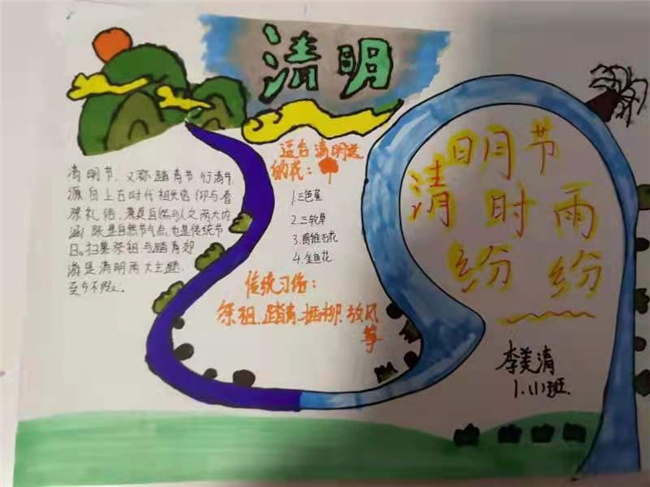 清明
清明节，又称踏青节、行清节，
源自上古时代祖先信仰与春
祭礼俗，兼具自然与人文两大内
涵，既是自然节气点，也是传统节
日。扫墓祭祖与踏青郊
游是清明两大主题，
至今不
适合清明送
的花：
1.三色堇
2.三轮草
3.
4.金鱼花
传统习俗：
祭祖、踏青、插柳、放风
筝
清明节
时雨
纷纷
李美清
1.11班